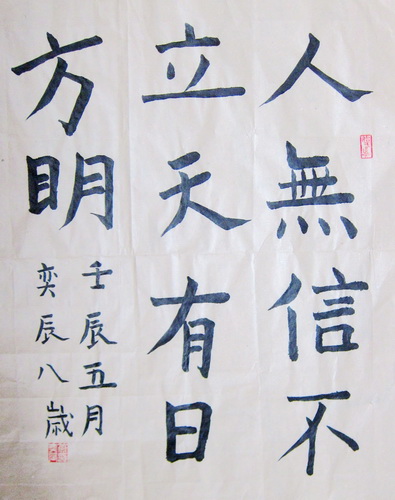 人無信不
立天有日
方眀
壬辰五月
奕辰八歳